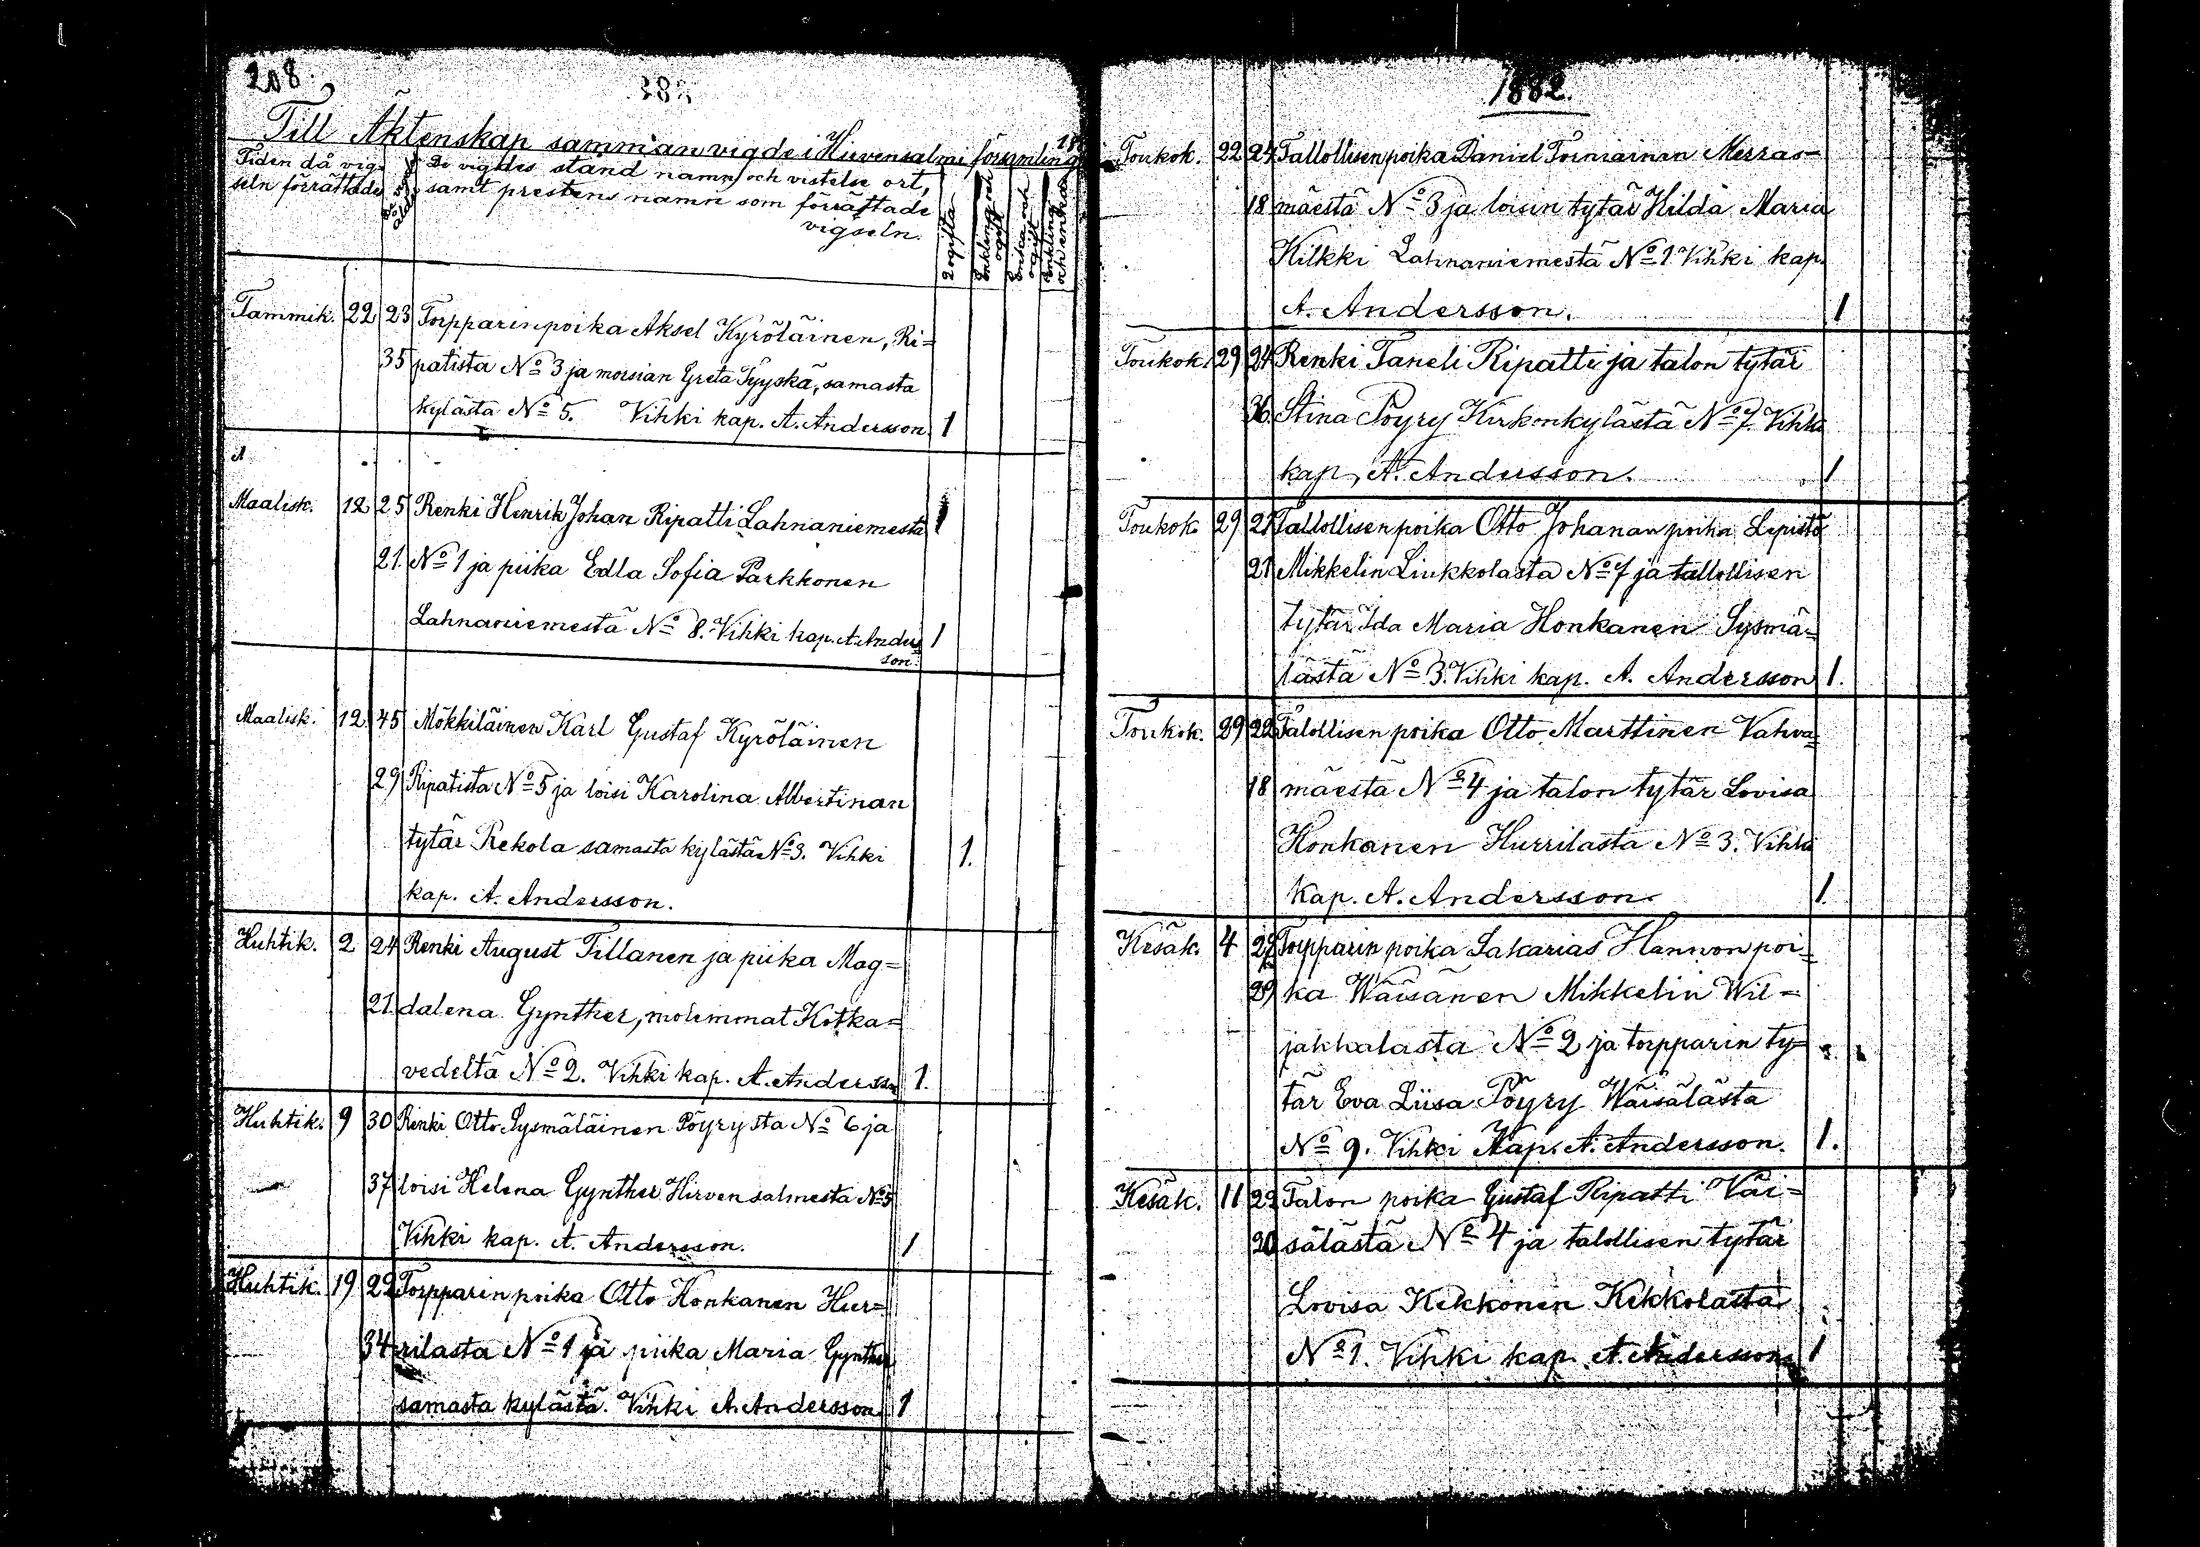 208.
Till Äktenskap sammanvigde i Hirvensalmi församling
Tiden då vig- De vigdes stånd namn och vistelse ort,
seln förrättades samt prestens namn som förrättade
vigseln.
2 ogifta
Enkling och ogift
Enka och ogift
Enkling och enka
Tammik. 22 23 Torpparin poika Aksel Kyröläinen, Ri=
35 patista No 3 ja morsian Greta Tyyskä, samasta
kylästä No 5. Vihki kap. A. Andersson. 1
Maalisk. 12 25 Renki Henrik Johan Ripatti Lahnaniemestä
21. No 1 ja piika Edla Sofia Parkkonen
Lahnaniemestä No 8. Vihki kap. A. Anders 1
son.
Maalisk. 12. 45 Mökkiläinen Karl Gustaf Kyröläinen
29 Ripatista No 5 ja loisi Karolina Albertinan
tytär Rekola samasta kylästä No 3. Vihki 1.
kap. A. Andersson.
Huhtik. 2 24 Renki August Tillanen ja piika Mag=
21. dalena Gynther, molemmat Kotka=
vedeltä No 2. Vihki kap. A. Andersson 1.
Huhtik. 9 30 Renki Otto Sysmäläinen Pöyrystä No 6 ja
37 loisi Helena Gynther Hirvensalmesta No 5
Vihki kap. A. Andersson. 1
Huhtik. 19 22 Torpparin poika Otto Honkanen Hur=
34 rilasta No 1 ja piika Maria Gynther
samasta kylästä. Vihki A. Andersson 1
1882.
Toukok. 22 24 Tallollisen poika Daniel Torniainen Merras=
18 mäestä No 3 ja loisin tytär Hilda Maria
Kilkki Lahnaniemestä No 1 Vihki kap.
A. Andersson. 1
Toukok. 29 24 Renki Taneli Ripatti ja talon tytär
36. Stina Pöyry Kirkonkylästä No 7. Vihki
kap. A. Andersson. 1
Toukok. 29 21 Tallollisen poika Otto Johanan poika Lepistö
21 Mikkelin Liukkolasta No 7 ja tallollisen
tytär Ida Maria Honkanen Sysmä=
lästä No 3. Vihki kap. A. Andersson 1.
Toukok. 29 22 Talollisen poika Otto Marttinen Vahva=
18 mäestä No 4 ja talon tytär Lovisa
Honkanen Hurrilasta No 3. Vihki
kap. A. Andersson. 1.
Kesäk. 4 27 Torpparin poika Sakarias Hannonpoi=
29 ka Wäisänen Mikkelin Wil=
jakkalasta No 2 ja torpparin ty=
tär Eva Liisa Pöyry Wäisälästä
No 9. Vihki Kap. A. Andersson. 1.
Kesäk. 11 22 Talon poika Gustaf Ripatti Väi=
20 sälästä No 4 ja talollisen tytär
Lovisa Kekkonen Kekkolasta
No 1. Vihki kap. A. Andersson. 1